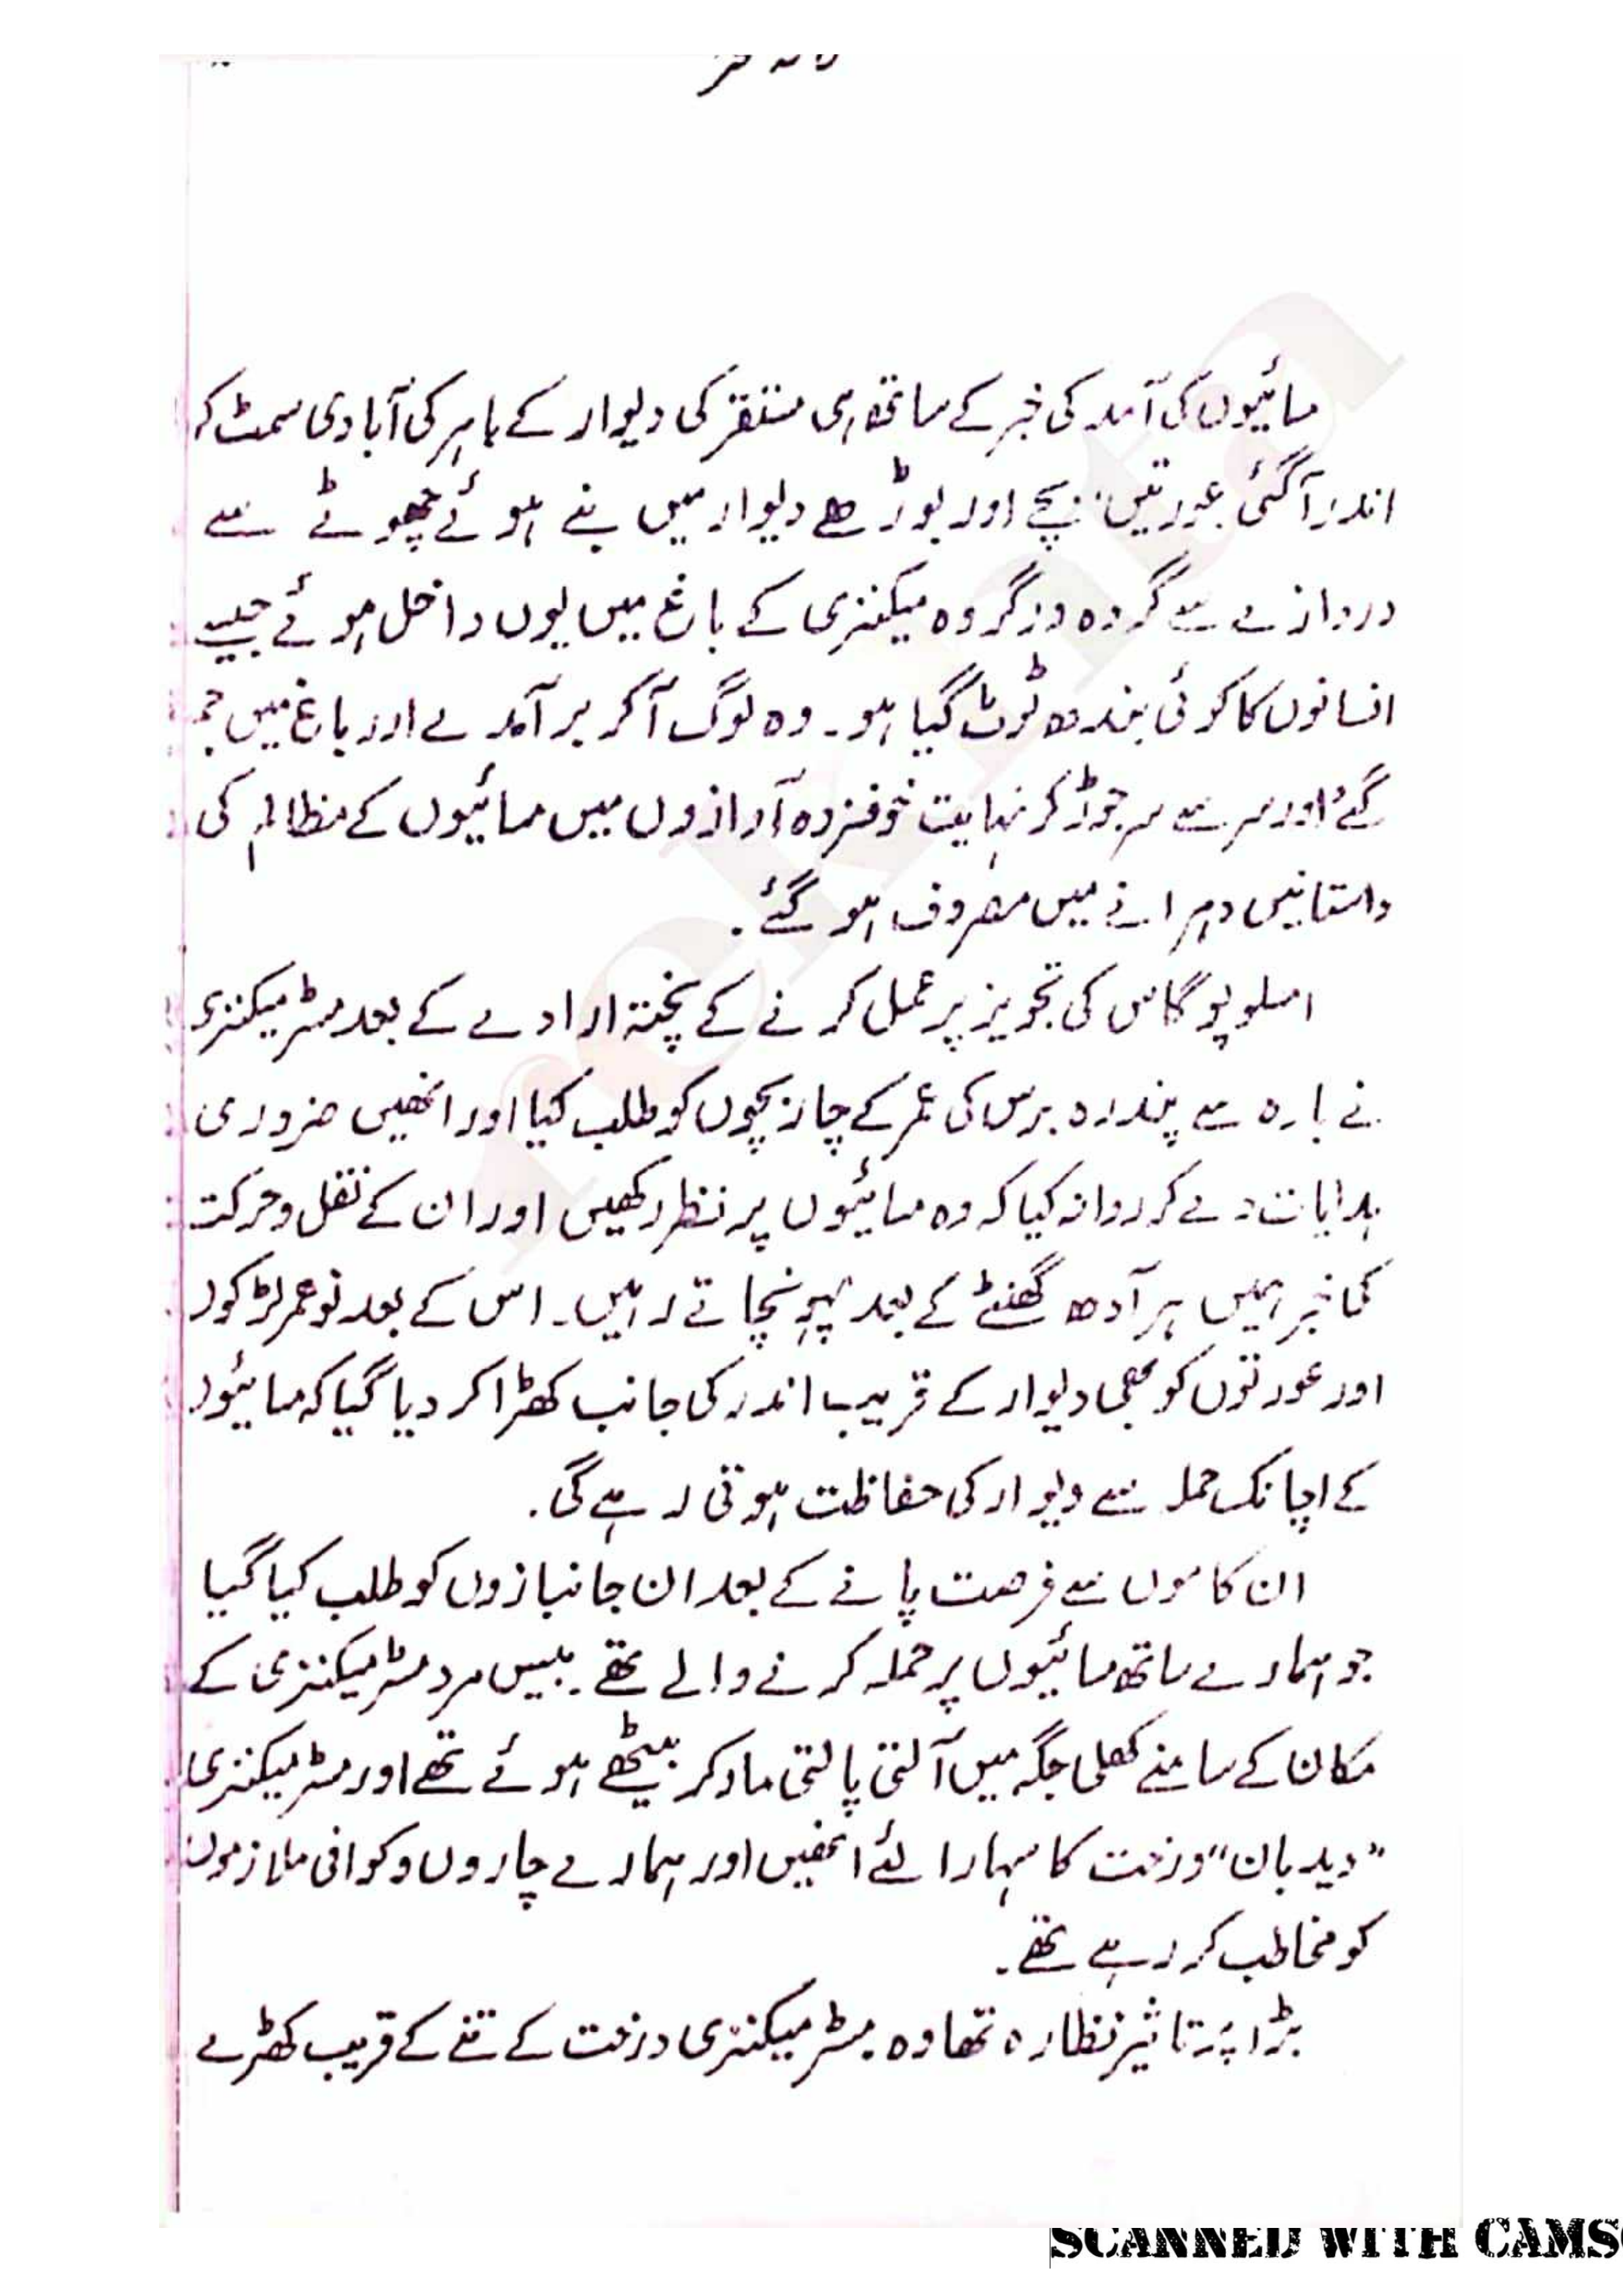 مسائیوں کی آمد کی خبر کے ساتھ ہی مستقر کی دیوار کے باہر کی آبادی سمٹ کر
اندر آ گئی عورتیں، بچے اور بوڑھے دیوار میں بنے ہوئے چھوٹے سے
دروازے سے گروہ در گروہ میکنزی کے باغ میں یوں داخل ہوئے جیسے
انسانوں کا کوئی بندھ ٹوٹ گیا ہو۔ وہ لوگ آکر برآمدے اور باغ میں جم
گئے اور سر سے سر جوڑ کر نہایت خوفزدہ آوازوں میں مسائیوں کے مظالم کی
داستانیں دہرانے میں مصروف ہو گئے۔
امسلوپوگاس کی تجویز پر عمل کرنے کے پختہ ارادے کے بعد مسٹر میکنزی
نے بارہ سے پندرہ برس کی عمر کے چار بچوں کو طلب کیا اور انھیں ضروری
ہدایات دے کر روانہ کیا کہ وہ مسائیوں پر نظر رکھیں اور ان کے نقل و حرکت
کی خبر ہمیں ہر آدھ گھنٹے کے بعد پہونچاتے رہیں۔ اس کے بعد نوعمر لڑکوں
اور عورتوں کو بھی دیوار کے قریب اندر کی جانب کھڑا کر دیا گیا کہ مسائیوں
کے اچانک حملہ سے دیوار کی حفاظت ہوتی رہے گی۔
ان کاموں سے فرصت پانے کے بعد ان جانبازوں کو طلب کیا گیا
جو ہمارے ساتھ مسائیوں پر حملہ کرنے والے تھے۔ بیس مرد مسٹر میکنزی کے
مکان کے سامنے کھلی جگہ میں آلتی پالتی مار کر بیٹھے ہوئے تھے اور مسٹر میکنزی
"دید بان" درخت کا سہارا لئے انھیں اور ہمارے چاروں وکوافی ملازموں
کو مخاطب کر رہے تھے۔
بڑا پُر تاثیر نظارہ تھا وہ۔ مسٹر میکنزی درخت کے تنے کے قریب کھڑے
SCANNED WITH CAMS